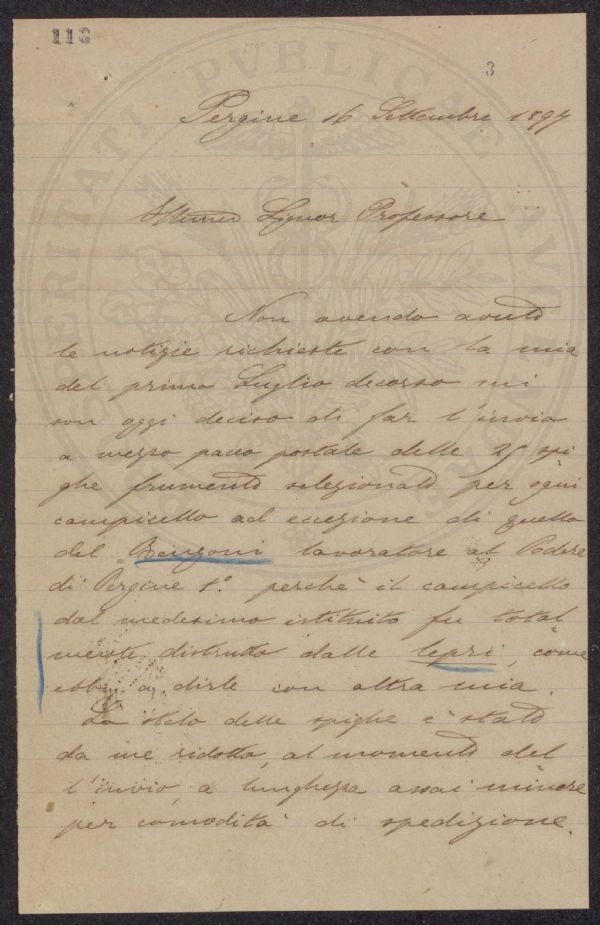 116
3
Pergine 16 Settembre 1897
Illmo Signor Professore
Non avendo avuto
le notizie richieste con la mia
del primo Luglio decorso mi
son oggi deciso di far l'invio
a mezzo pacco postale delle 25 spi
ghe frumento selezionato per ogni
campicello ad eccezione di quello
del Benzoni lavoratore al Podere
di Pergine 1º perchè il campicello
dal medesimo istituito fu total
mente distrutto dalle lepri, come
ebbi a dirle con altra mia.
Lo stelo delle spighe è stato
da me ridotto, al momento del
l'invio, a lunghezza assai minore
per comodità di spedizione.